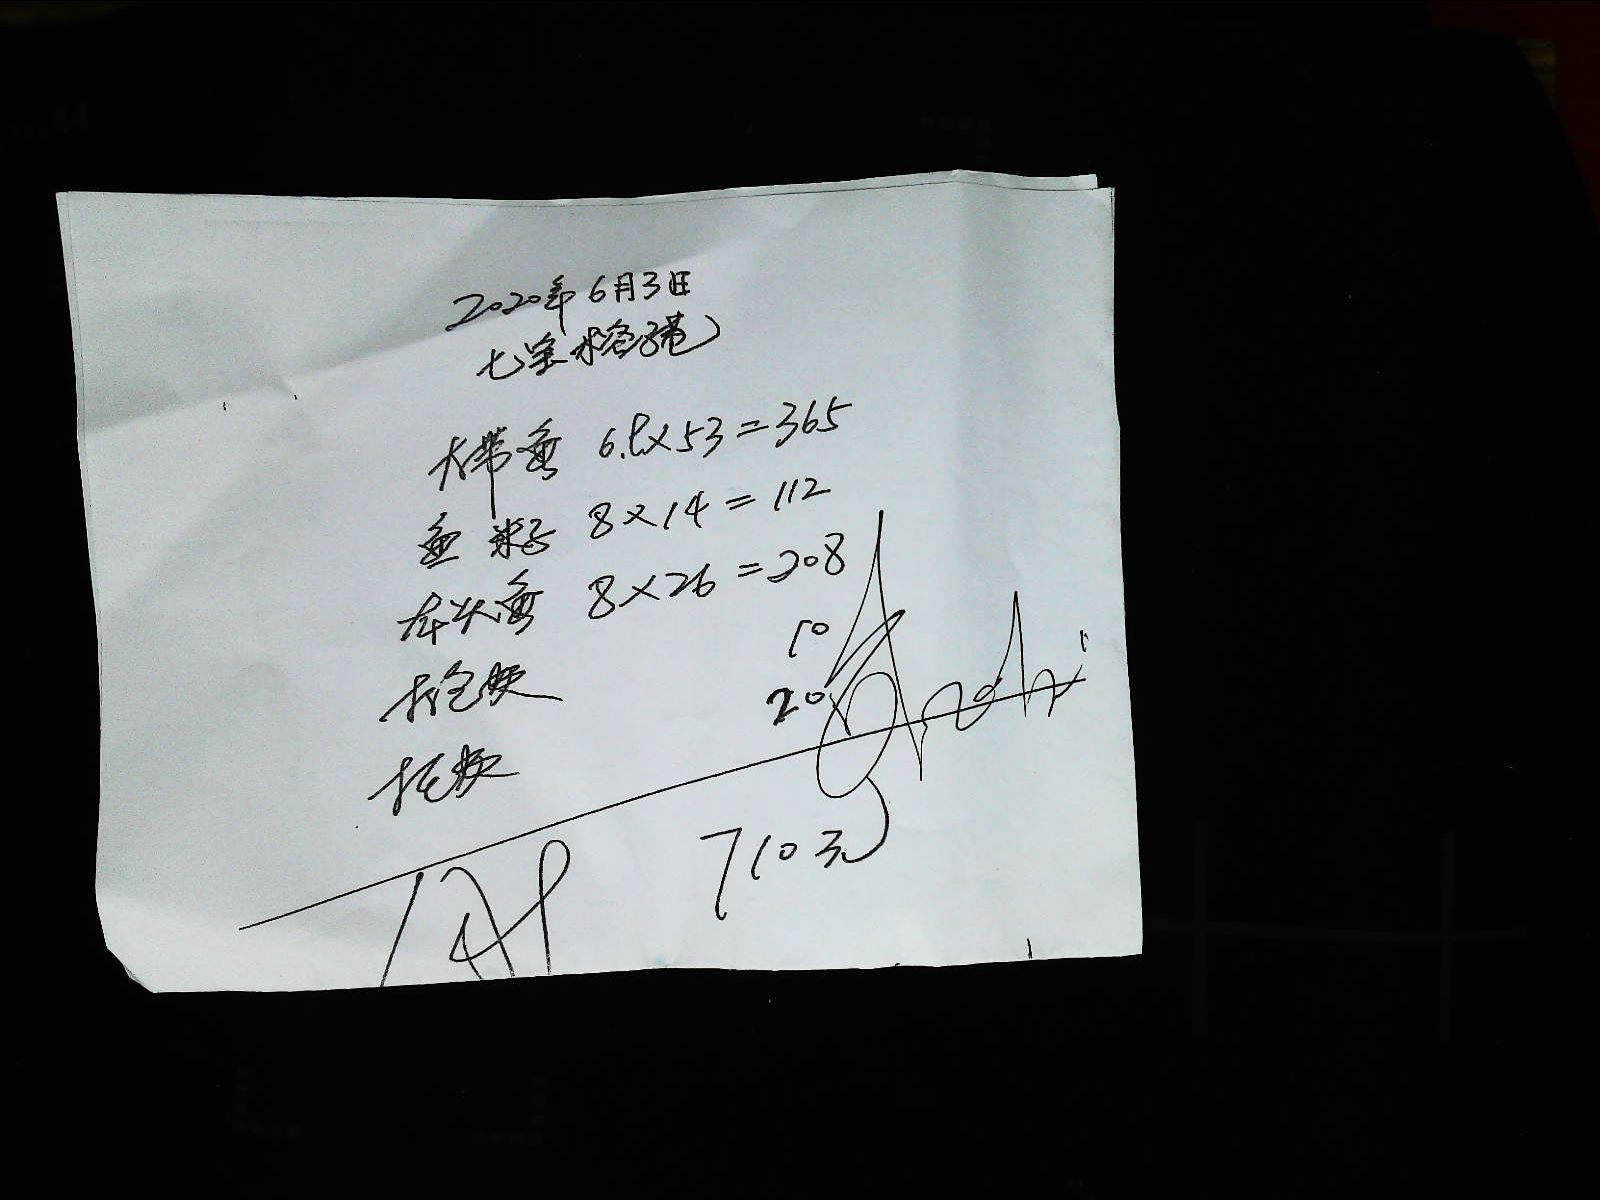 2020年6月3日
七宝水
大带鱼 6.9×53=365
鱼籽 8×14=112
老头鱼 8×26=208
打包费 10
托费 20
710元